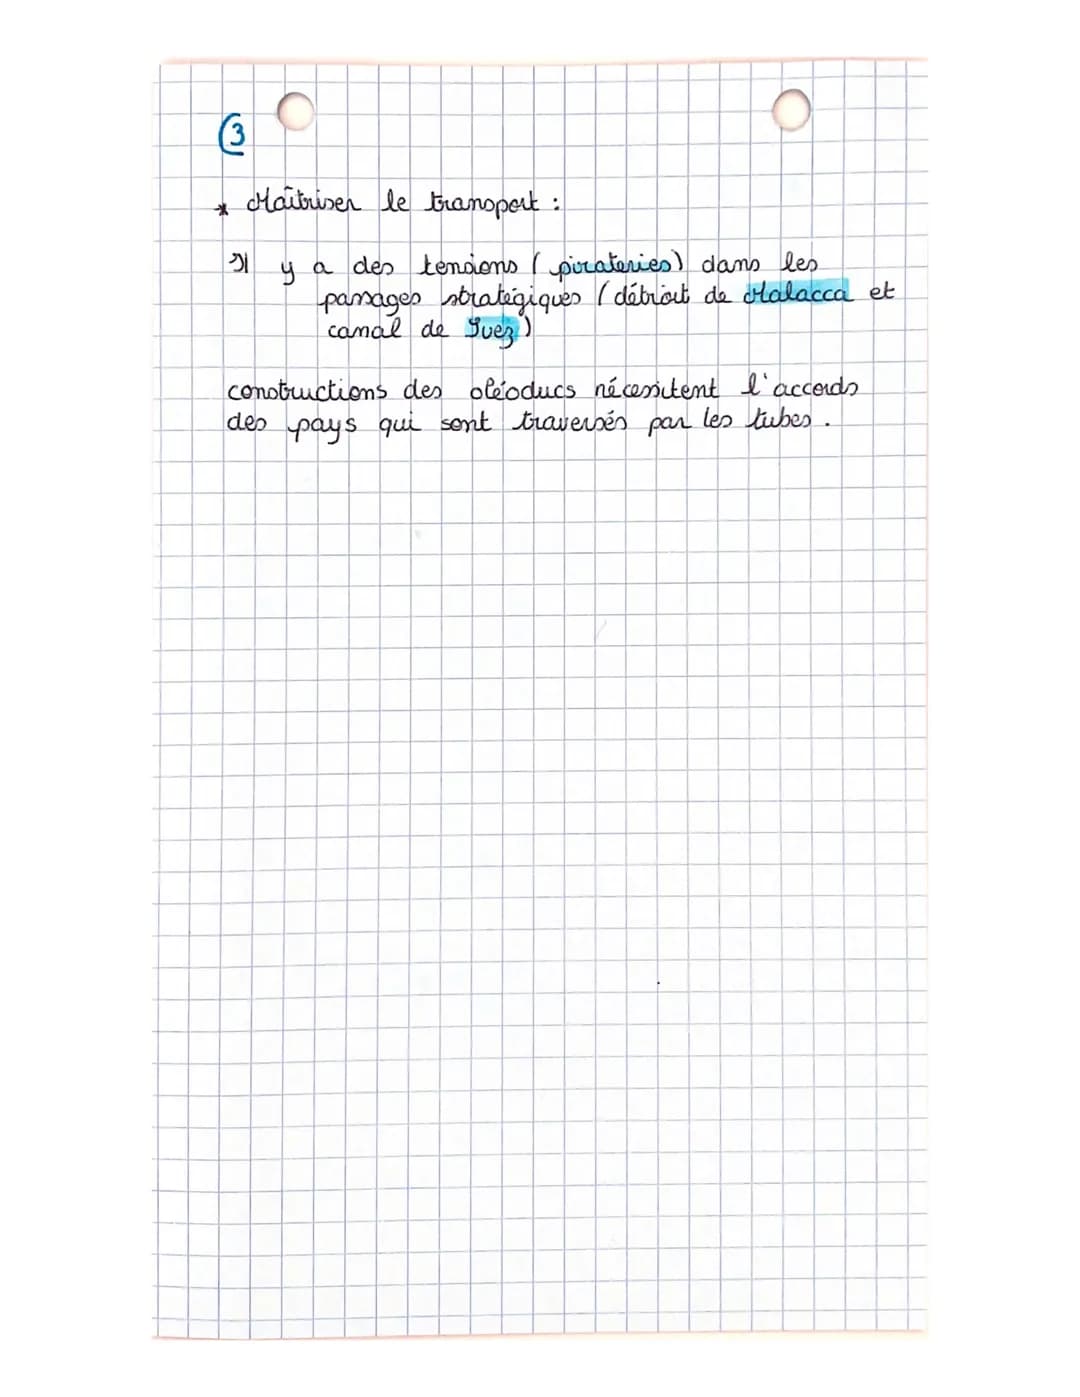 3
* Maîtriser le transport :
Il y a des tensions ( pirateries) dans les
passages stratégiques ( détroit de Malacca et
canal de Suez )
constructions des oléoducs nécessitent l'accords
des pays qui sont traversés par les tubes .